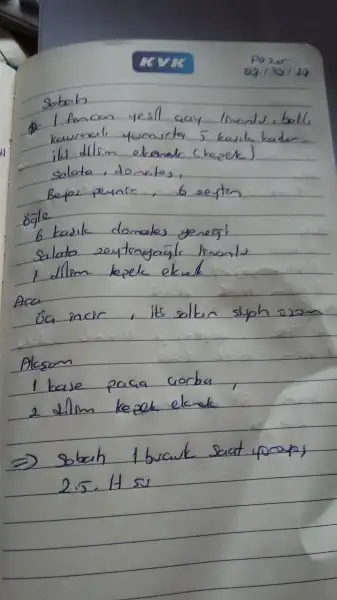 KVK
Pazar
Sabah
1 fincan yeşil çay limonlu, ballı
kavurmalı yumurta 5 kaşık kadar
iki dilim ekmek (kepek)
salata, domates,
Beyaz peynir, 6 zeytin
öğle
6 kaşık domates yemeği
Salata zeytinyağlı limonlu
1 dilim kepek ekmek
Ara
üç incir, iki salkım siyah üzüm
Akşam
1 kase paça çorba,
2 dilim kepek ekmek
⇒ Sabah 1 buçuk saat yürüyüş
2.5. lt su